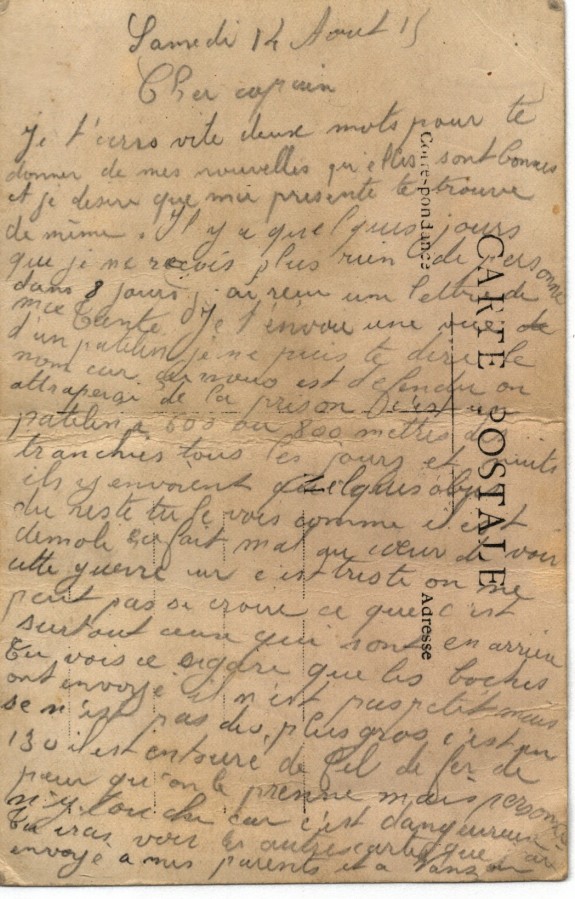 Samedi 14 Aout 15
Cher copain
Je t'ecris vite deux mots pour te
donner de mes nouvelles qu'elles sont bonnes
et je desire que ma presente te trouve
de même. Il y a quelques jours
que je ne recois plus rien de personne
dans 8 jours j'ai recu un lettre de
ma Tante. Je t'envoie une vue de
d'un patelin je ne puis te dire le
nom car ça nous est defendu on
attraperai de la prison c'est un
patelin a 600 ou 800 metres des
tranchies tous les jours et nuits
ils y envoient quelques obus
du reste tu le vois comme il est
demoli ça fait mal au cœur de voir
cette guerre car c'est triste on ne
peut pas se croire ce que c'est
surtout ceux qui sont en arriere
Tu vois ce cigare que les boches
ont envoyé il n'est pas petit mais
se n'est pas du plus gros c'est un
130 il est entouré de fil de fer de
peur qu'on le prenne mais personne
n'y touche car c'est dangereux
Tu iras voir les autres cartes que j'ai
envoyé a mes parents et a
CARTE POSTALE
Correspondance
Adresse